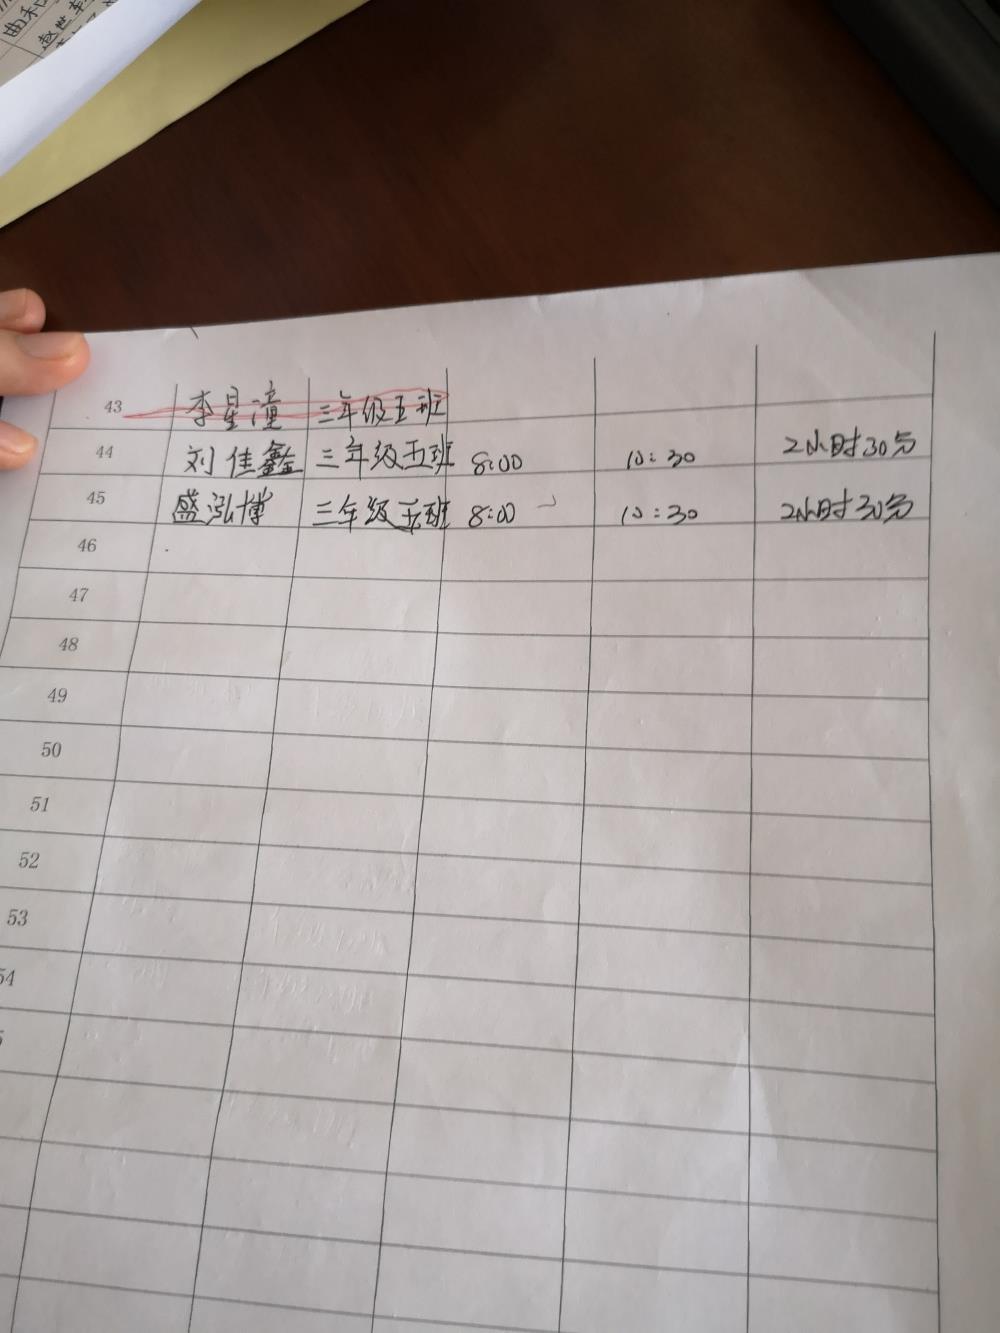 曲
43 李星潼 三年级五班
44 刘佳鑫 三年级五班 8:00 10:30 2小时30分
45 盛泓博 三年级五班 8:00 10:30 2小时30分
46
47
48
49
50
51
52
53
54